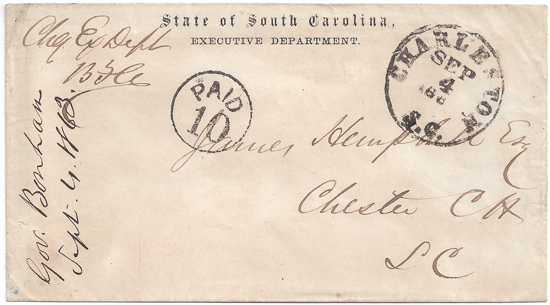 State of South Carolina,
EXECUTIVE DEPARTMENT.
Chg Ex Dept
CHARLESTON
SEP
4
S.C.
PAID
10
James Hemphill Esq
Chester CH
SC
Gov. Bonham
Sept. 4. 1863